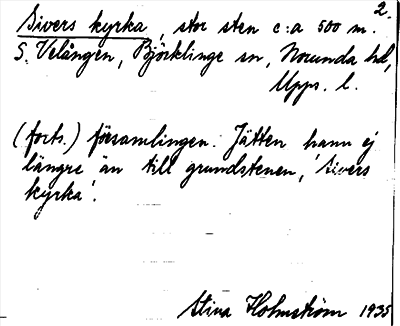 2.
Sivers kyrka, stor sten c:a 500 m.
S. Velången, Björklinge sn, Norunda hd,
Upps. l.
(forts.) församlingen. Jätten hann ej
längre än till grundstenen, 'Sivers
kyrka'.
Stina Holmström 1935